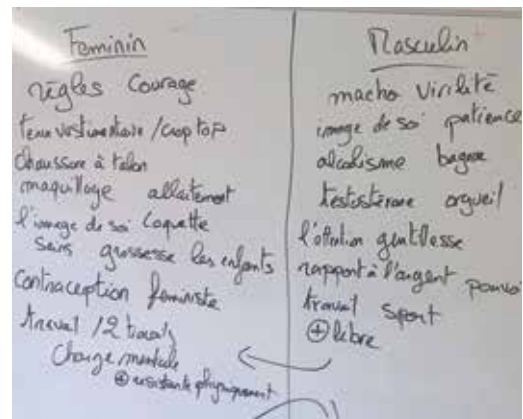 Feminin
règles Courage
tenue vestimentaire / crop top
chaussure à talon
maquillage allaitement
l'image de soi Coquette
seins grossesse les enfants
Contraception féministe
travail / 2 travails
Charge mentale
⊕ résistante physiquement
Masculin
macho virilité
image de soi patience
alcoolisme bagarre
testostérone orgueil
l'attention gentillesse
rapport à l'argent pouvoir
travail sport
⊕ libre